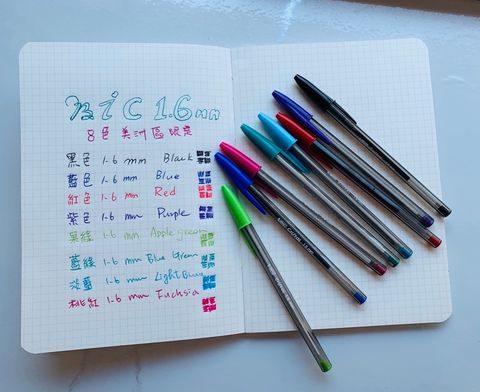 BiC 1.6mm
8色美洲區限定
黑色 1.6 mm Black
藍色 1.6 mm Blue
紅色 1.6 mm Red
紫色 1.6 mm Purple
果綠 1.6 mm Apple green
藍綠 1.6 mm Blue Green
淡藍 1.6 mm Light Blue
桃紅 1.6 mm Fuchsia